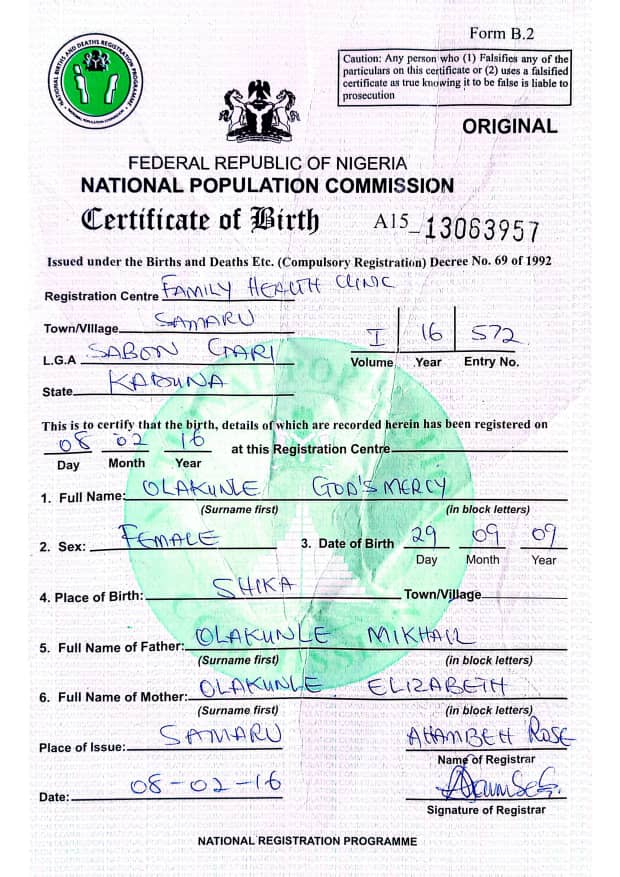 Form B.2
NATIONAL BIRTHS AND DEATHS REGISTRATION PROGRAMME
Caution: Any person who (1) Falsifies any of the
particulars on this certificate or (2) uses a falsified
certificate as true knowing it to be false is liable to
prosecution
ORIGINAL
FEDERAL REPUBLIC OF NIGERIA
NATIONAL POPULATION COMMISSION
Certificate of Birth A15_13063957
Issued under the Births and Deaths Etc. (Compulsory Registration) Decree No. 69 of 1992
Registration Centre FAMILY HEALTH CLINIC
Town/Village SAMARU
L.G.A SABON GARI
I 16 572
Volume Year Entry No.
State KADUNA
This is to certify that the birth, details of which are recorded herein has been registered on
08 02 16 at this Registration Centre
Day Month Year
1. Full Name: OLAKUNLE GOD'S MERCY
(Surname first) (in block letters)
2. Sex: FEMALE 3. Date of Birth 29 09 09
Day Month Year
4. Place of Birth: SHIKA Town/Village
5. Full Name of Father: OLAKUNLE MIKHAIL
(Surname first) (in block letters)
6. Full Name of Mother: OLAKUNLE ELIZABETH
(Surname first) (in block letters)
Place of Issue: SAMARU ROSE
Name of Registrar
Date: 08-02-16
Signature of Registrar
NATIONAL REGISTRATION PROGRAMME